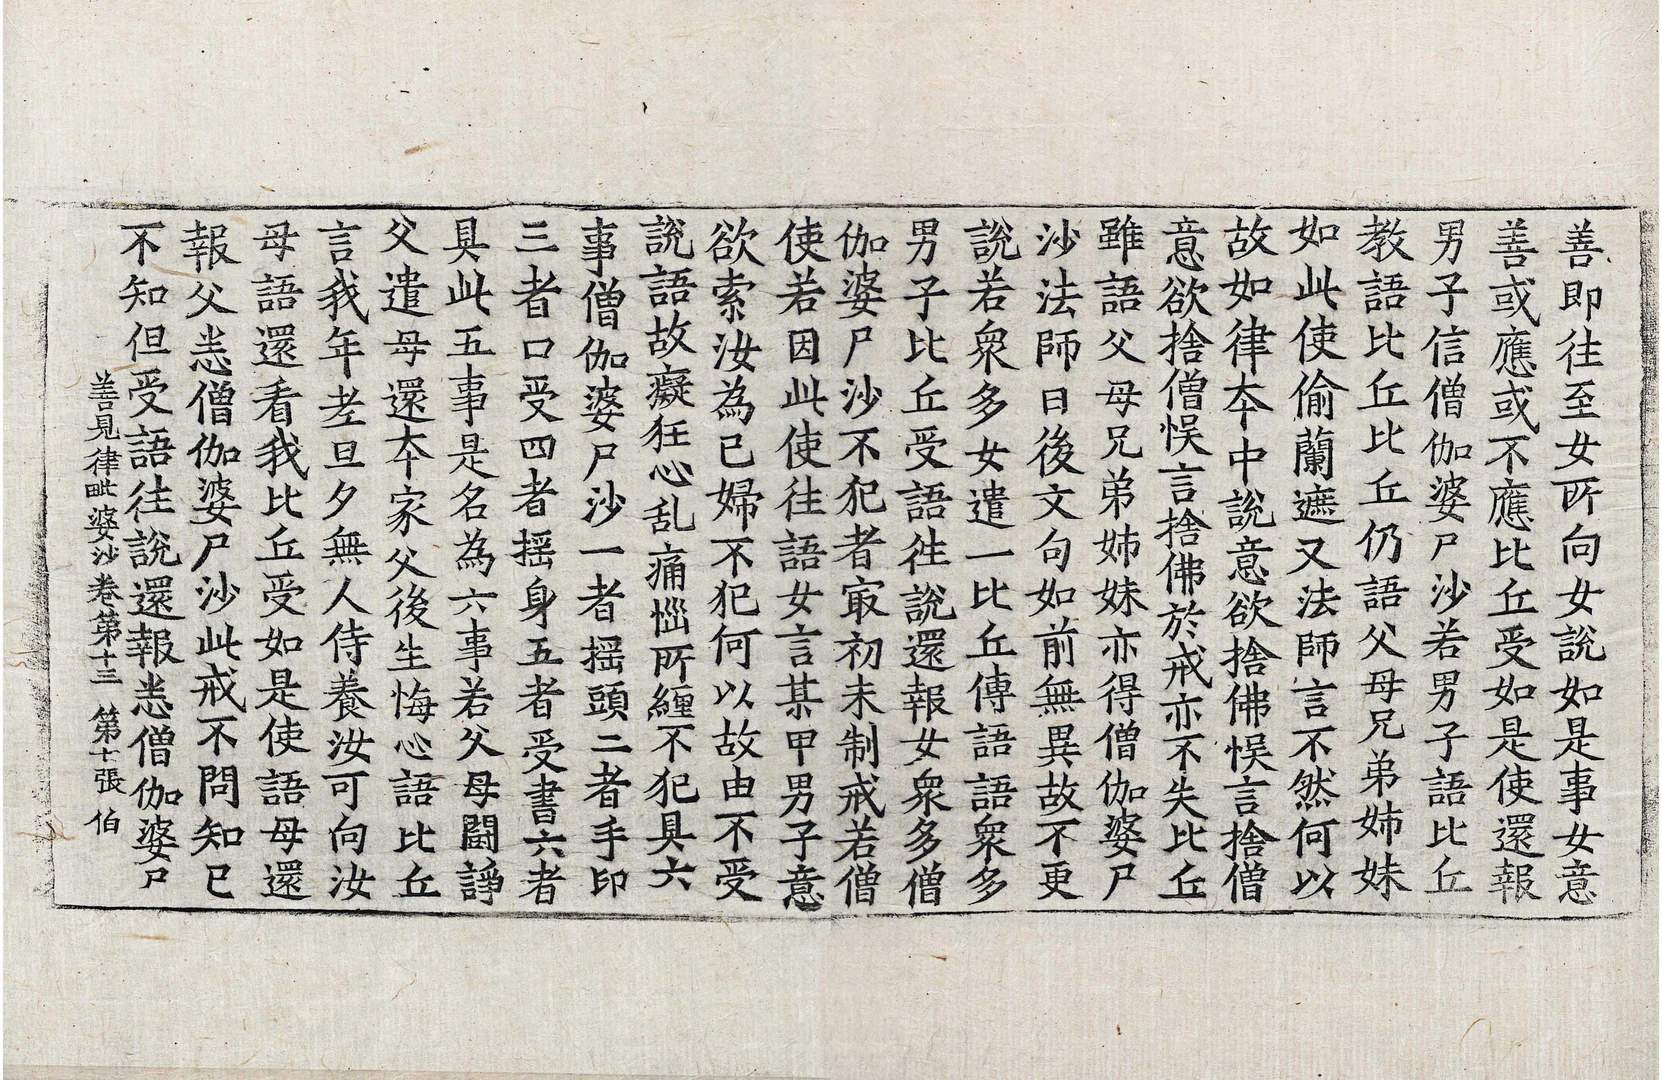 善即往至女所向女說如是事女意
善或應或不應比丘受如是使還報
男子信僧伽婆尸沙若男子語比丘
教語比丘比丘仍語父母兄弟姉妹
如此使偷蘭遮又法師言不然何以
故如律夲中說意欲捨佛悮言捨僧
意欲捨僧悮言捨佛於戒亦不失比丘
雖語父母兄弟姉妹亦得僧伽婆尸
沙法師曰後文句如前無異故不更
說若衆多女遣一比丘傳語語衆多
男子比丘受語往說還報女衆多僧
伽婆尸沙不犯者㝡初未制戒若僧
使若因此使往語女言某甲男子意
欲索汝為已婦不犯何以故由不受
說語故癡狂心乱痛惱所纏不犯具六
事僧伽婆尸沙一者揺頭二者手印
三者口受四者揺身五者受書六者
具此五事是名為六事若父母鬪諍
父遣母還夲家父後生悔心語比丘
言我年老旦夕無人侍養汝可向汝
母語還看我比丘受如是使語母還
報父恙僧伽婆尸沙此戒不問知已
不知但受語往說還報恙僧伽婆尸
善見律毗婆沙卷第十三　第十張　伯